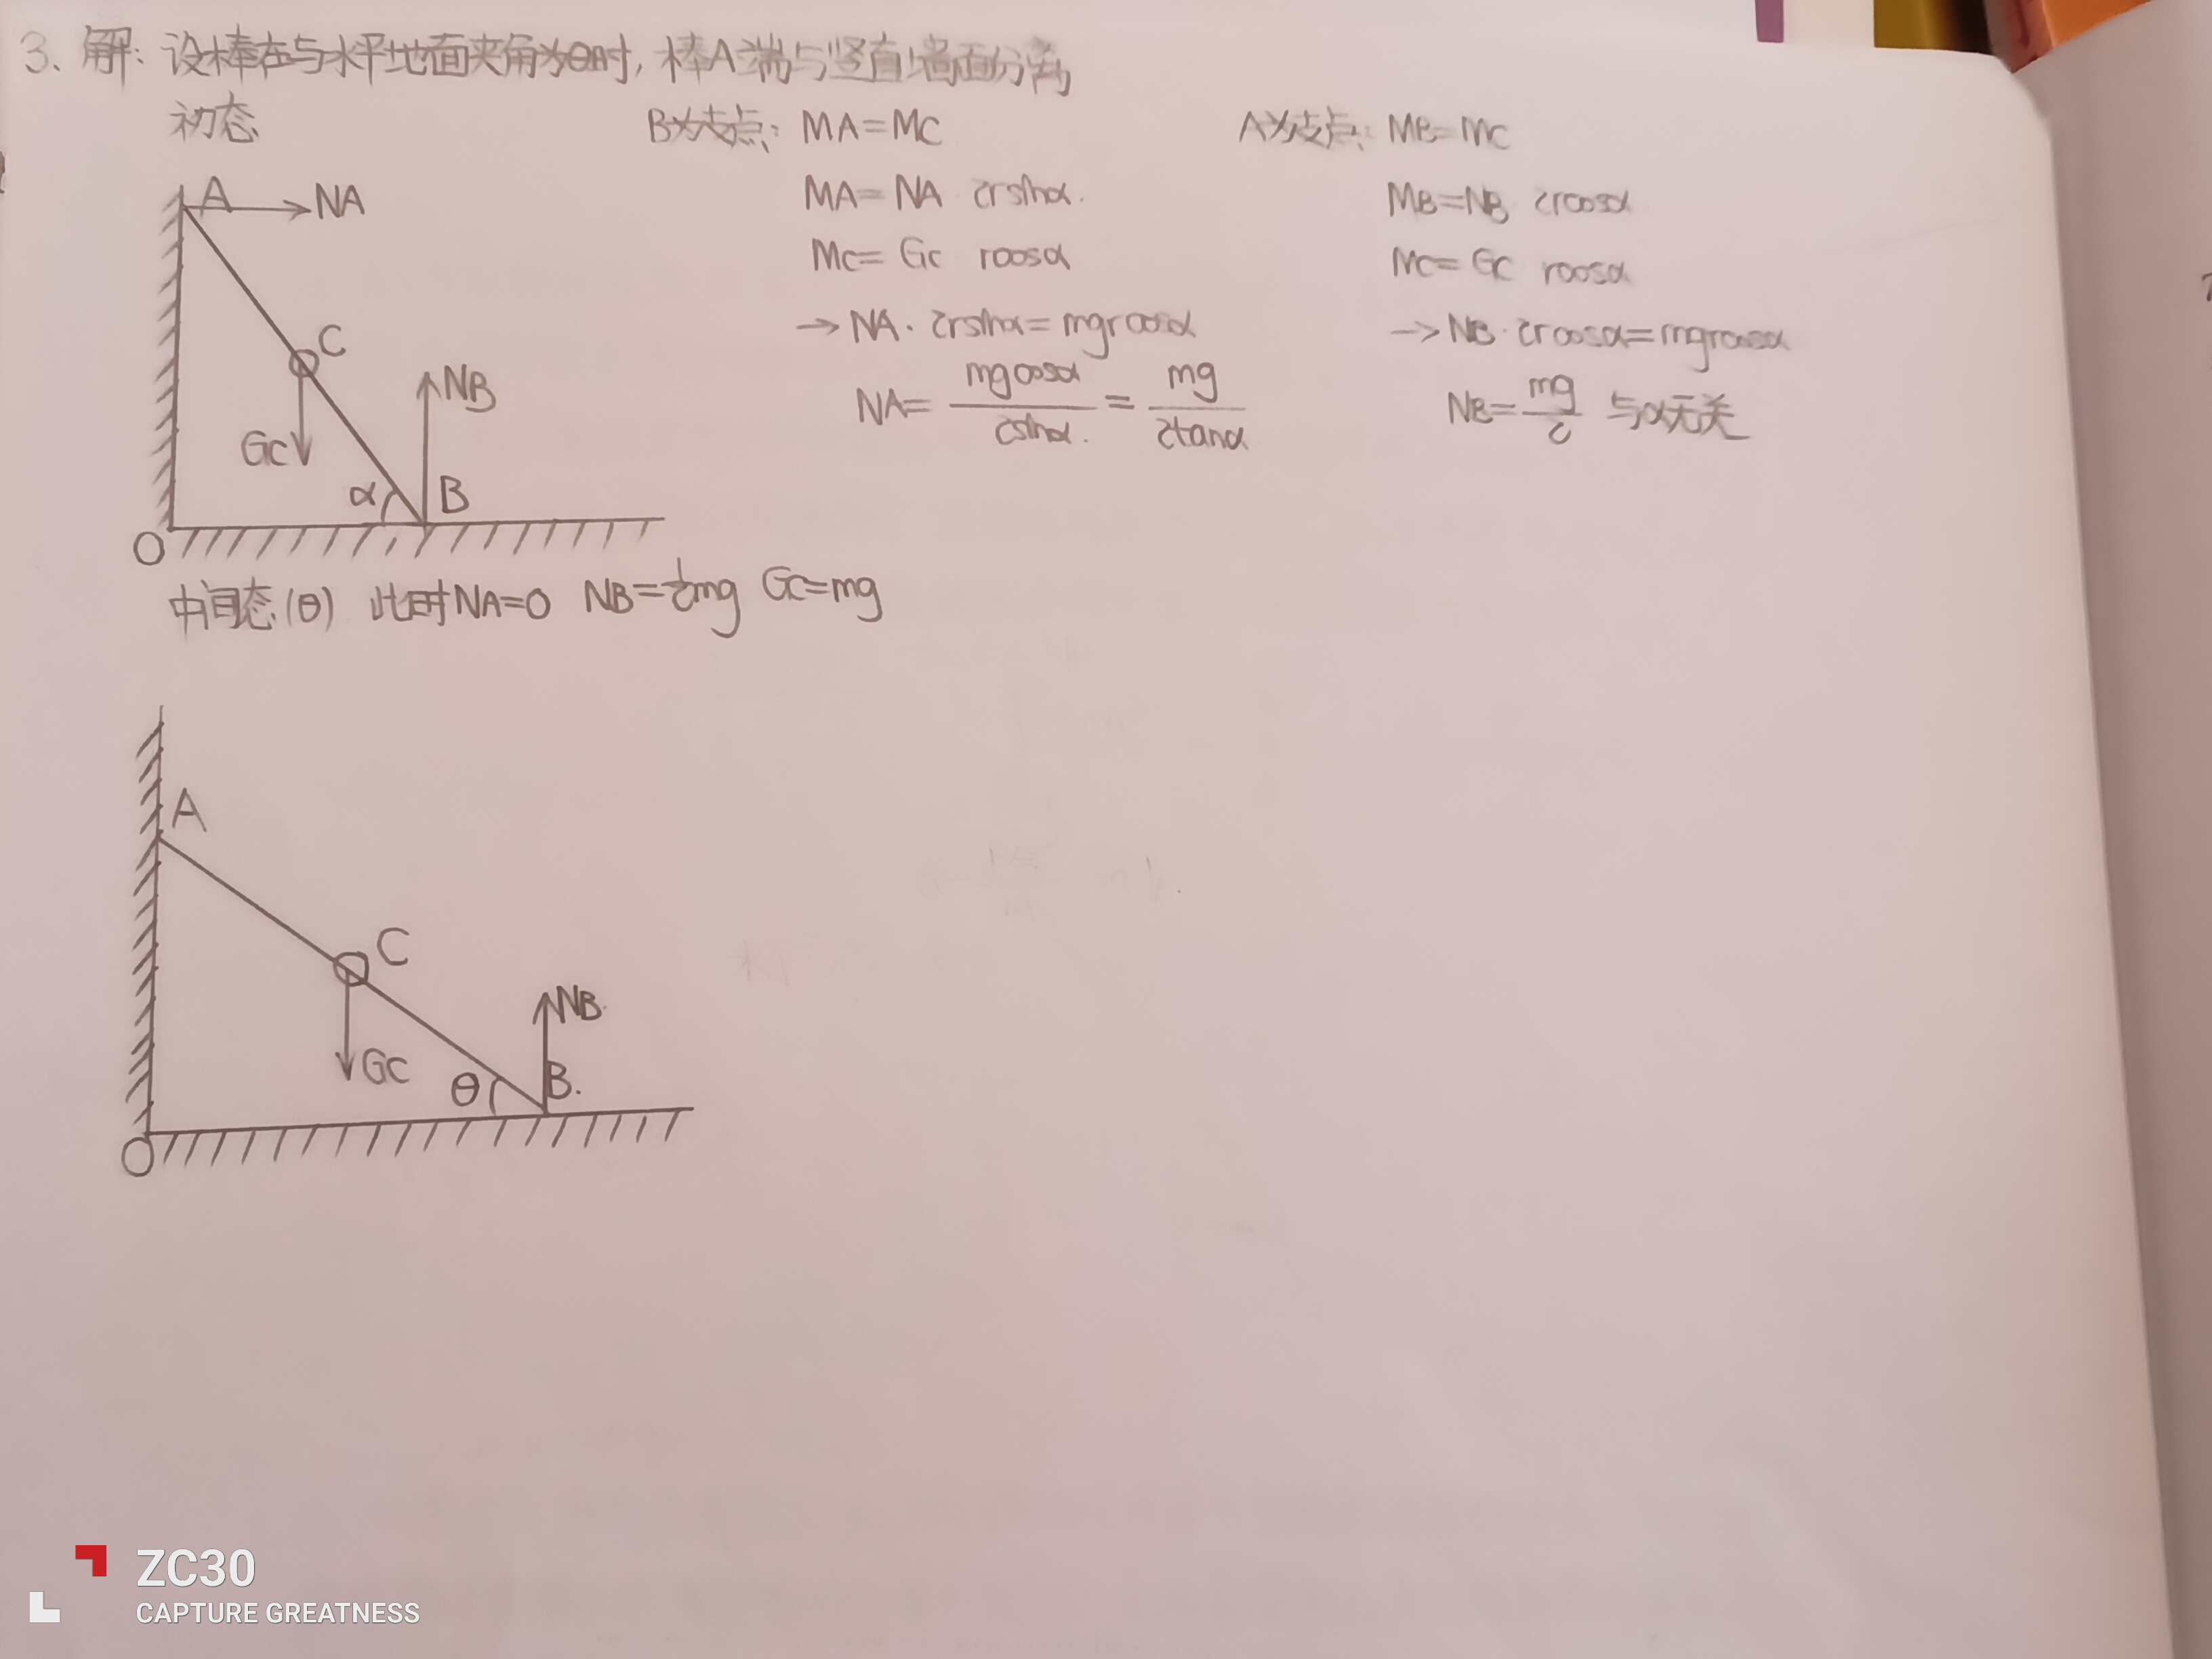 3、解：设棒在与水平地面夹角为θ时，棒A端与竖直墙面分离
初态
B为支点：MA=MC
MA=NA 2rsinα.
MC=GC rcosα
→NA·2rsinα=mgrcosα
NA=mgcosα/2sinα.=mg/2tanα
A为支点：MB=MC
MB=NB 2rcosα
MC=GC rcosα
→NB·2rcosα=mgrcosα
NB=mg/2 与α无关
A NA
C
NB
GC
α B
O
中间态(θ) 此时NA=0 NB=½mg GC=mg
A
C
NB.
GC
θ B.
O
ZC30
CAPTURE GREATNESS